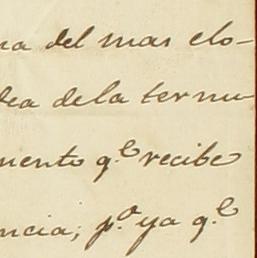 na del mas elo-
dea dela ternu-
mento q.e recibe
ncia; p.a ya q.e